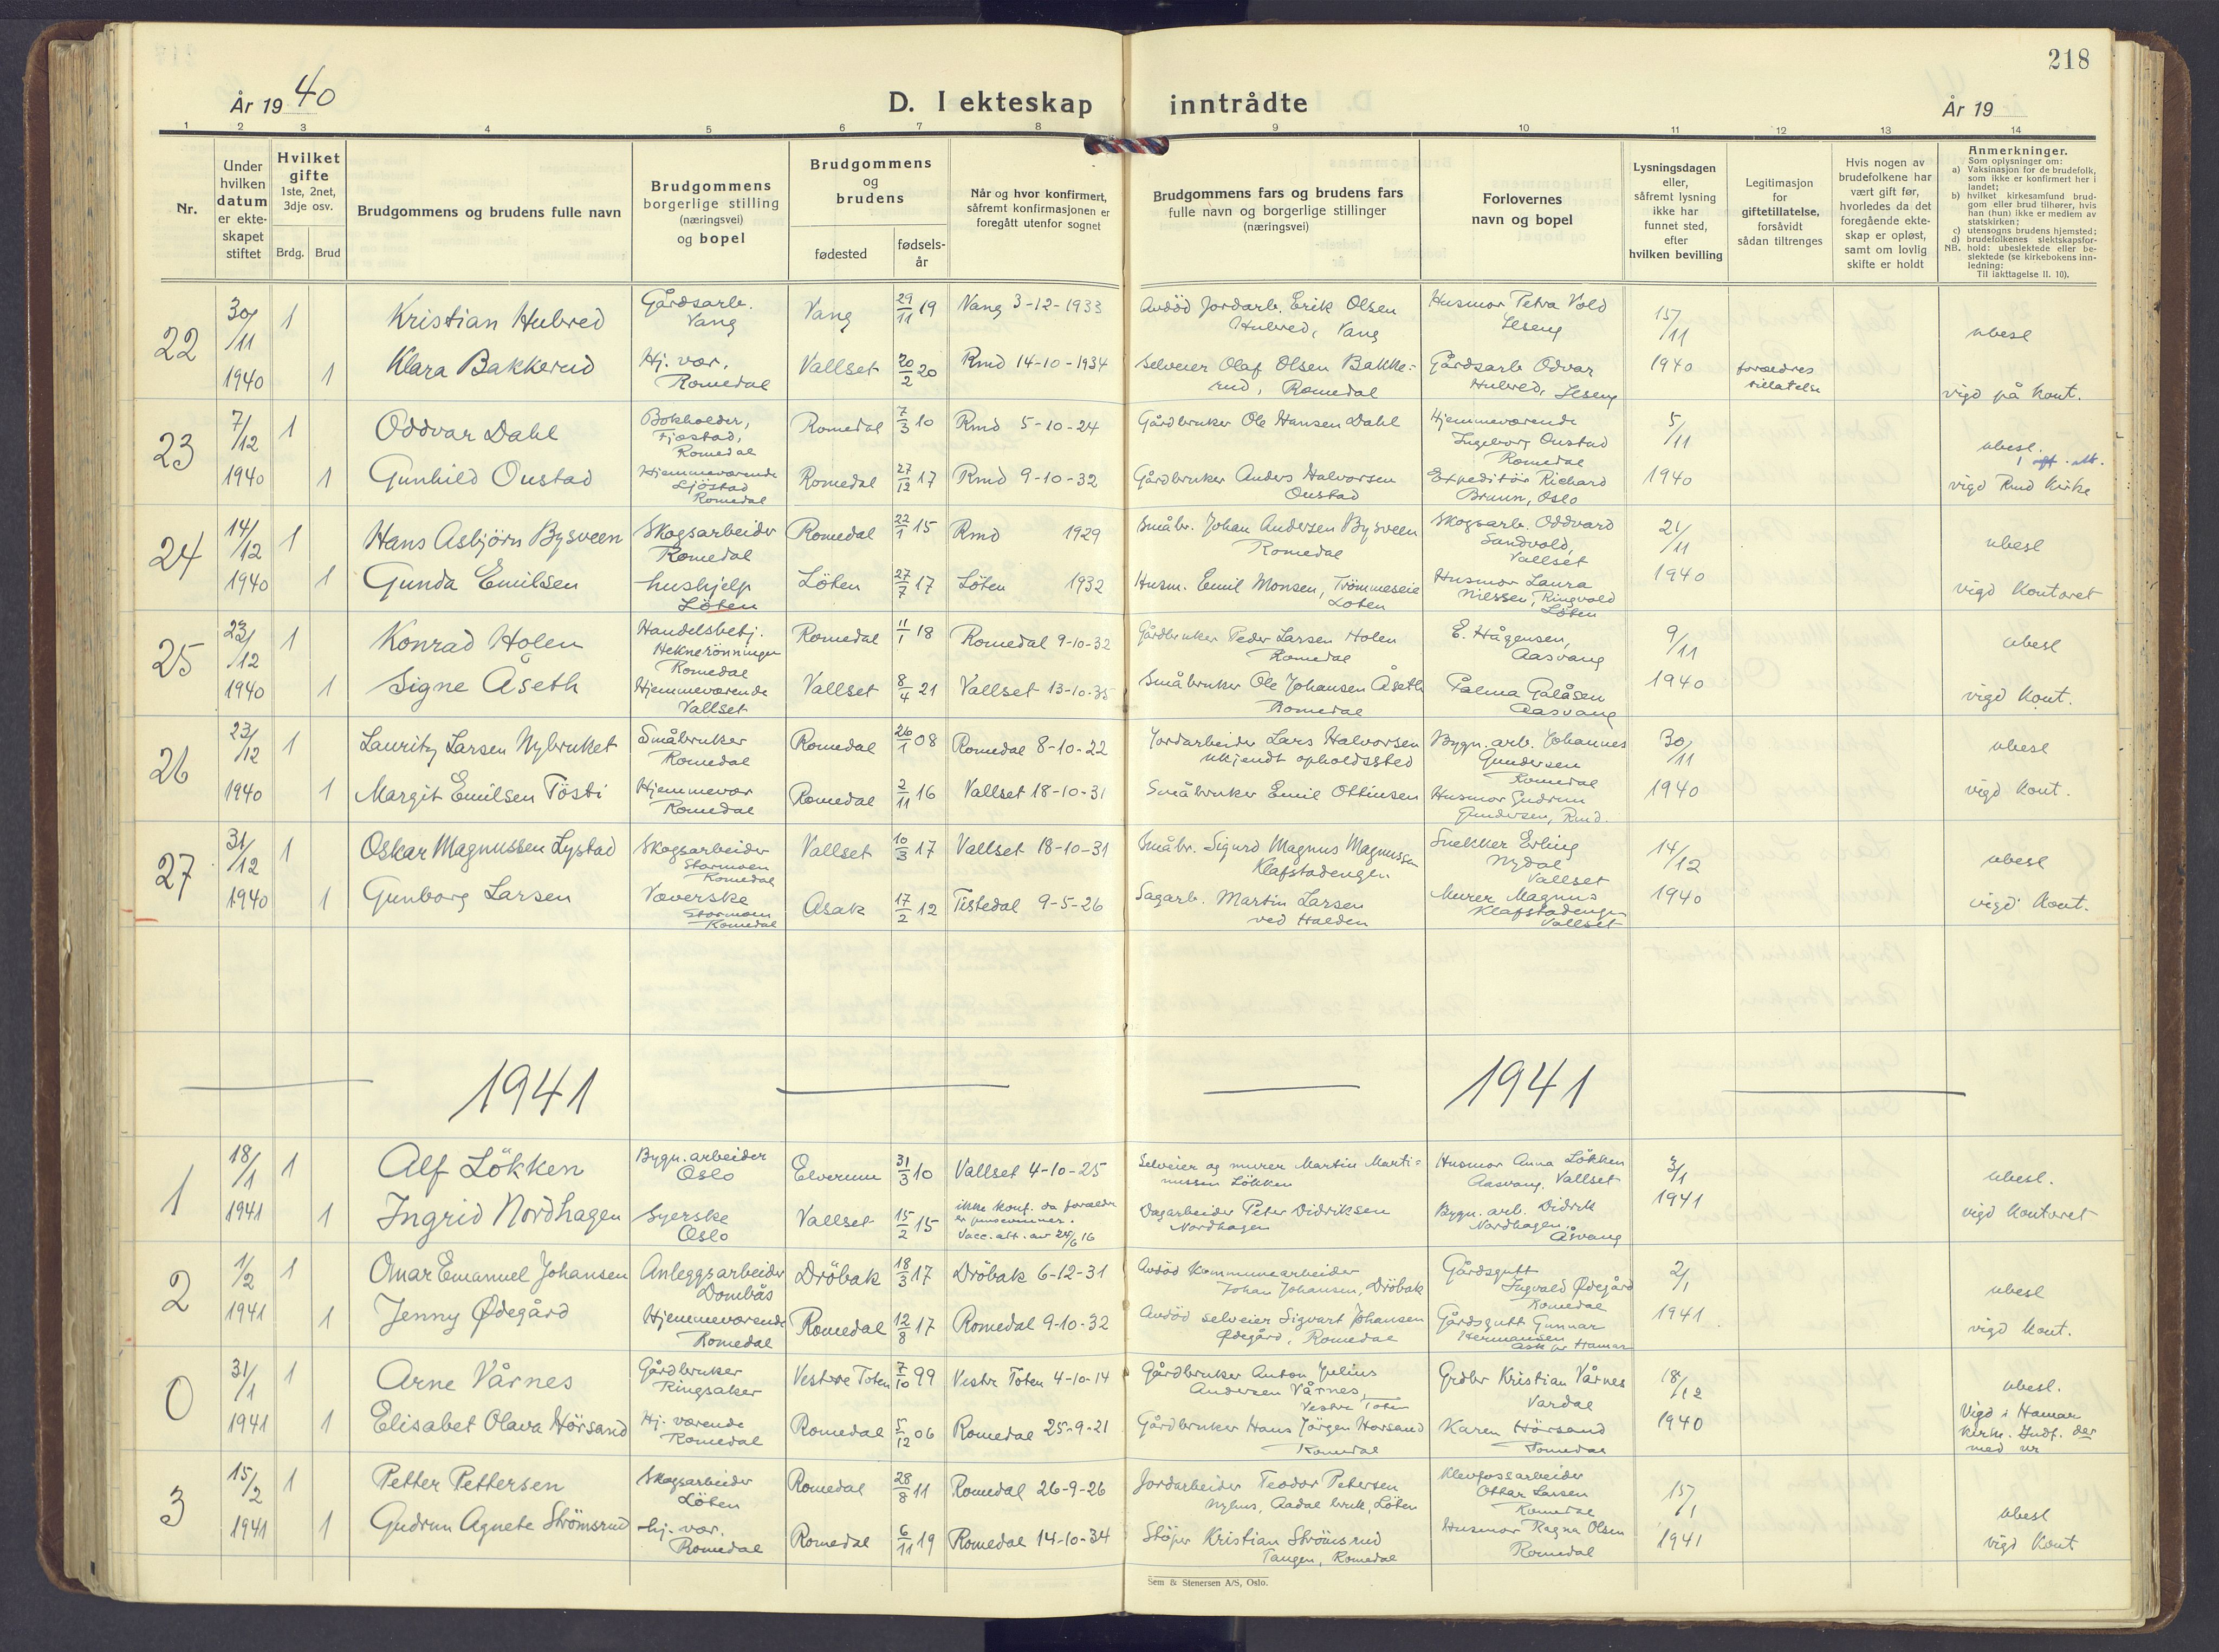 218
År 19 40
D. I ekteskap inntrådte
År 19
1 2 3 4 5 6 7 8 9 10 11 12 13 14
Nr.
Under
hvilken
datum
er ekte-
skapet
stiftet
Hvilket
gifte
1ste, 2net,
3dje osv.
Brdg. Brud
Brudgommens og brudens fulle navn
Brudgommens
borgerlige stilling
(næringsvei)
og bopel
Brudgommens
og
brudens
fødested
fødsels-
år
Når og hvor konfirmert,
såfremt konfirmasjonen er
foregått utenfor sognet
Brudgommens fars og brudens fars
fulle navn og borgerlige stillinger
(næringsvei)
Forlovernes
navn og bopel
Lysningsdagen
eller,
såfremt lysning
ikke har
funnet sted,
efter
hvilken bevilling
Legitimasjon
for
giftetillatelse,
forsåvidt
sådan tiltrenges
Hvis nogen av
brudefolkene har
vært gift før,
hvorledes da det
foregående ekte-
skap er opløst,
samt om lovlig
skifte er holdt
Anmerkninger.
Som oplysninger om:
a) Vaksinasjon for de brudefolk,
som ikke er konfirmert her i
landet;
b) hvilket kirkesamfund brud-
gom eller brud tilhører, hvis
han (hun) ikke er medlem av
statskirken;
c) utensogns brudens hjemsted;
d) brudefolkenes slektskapsfor-
NB. hold: ubeslektede eller be-
slektede (se kirkebokens inn-
ledning:
Til iakttagelse II. 10).
22
30/11
1940
1
Kristian Hubred
Gårdsarb.
Vang
Vang
29/11 19
Vang 3-12-1933
Avdöd Jordarb. Erik Olsen
Hubred, Vang
Husmor Petra Vold
Ilseng
15/11
1940
ubesl
1
Klara Bakkerud
Hj. vær.
Romedal
Vallset
20/2 20
Rmd 14-10-1934
Selveier Olaf Olsen Bakke=
rud, Romedal
Gårdsarb Odvar
Hubred, Ilseng
foreldres
tillatelse
vigd på kont.
23
7/12
1940
1
Oddvar Dahl
Bokholder,
Fjæstad,
Romedal
Romedal
7/3 10
Rmd 5-10-24
Gårdbruker Ole Hansen Dahl
Hjemmeværende
Ingeborg Oustad
Romedal
5/11
1940
ubesl.
1
Gunhild Oustad
Hjemmeværende
Ljöstad
Romedal
Romedal
27/12 17
Rmd 9-10-32
Gårdbruker Anders Halvorsen
Oustad
Expeditör Richard
Bruun, Oslo
vigd Rmd kirke
24
14/12
1940
1
Hans Asbjörn Bysveen
Skogsarbeider
Romedal
Romedal
22/1 15
Rmd 1929
Småbr. Johan Andersen Bysveen
Romedal
Skogsarb. Oddvard
Sandvold,
Vallset
21/11
1940
ubesl
1
Gunda Emilsen
hushjelp
Löten
Löten
27/7 17
Löten 1932
Husm. Emil Monsen, Trömmeseie
Löten
Husmor Laura
Nilssen, Ringvold
Löten
vigd kontoret
25
23/12
1940
1
Konrad Holen
Handelsbetj.
Heknerönningen
Romedal
Romedal
11/1 18
Romedal 9-10-32
Gårdbruker Peder Larsen Holen
Romedal
E. Hågensen,
Aasvang
9/11
1940
ubesl
1
Signe Åseth
Hjemmeværende
Vallset
Vallset
8/4 21
Vallset 13-10-35
Småbruker Ole Johansen Åseth
Romedal
Palma Galåsen
Aasvang
vigd kont.
26
23/12
1940
1
Lauritz Larsen Nybruket
Småbruker
Romedal
Romedal
26/1 08
Romedal 8-10-22
Jordarbeider Lars Halvorsen
ukjendt opholdssted
Bygn. arb. Johannes
Gundersen
Romedal
30/11
1940
ubesl
1
Margit Emilsen Tösti
Hjemmevær
Romedal
Romedal
2/11 16
Vallset 18-10-31
Småbruker Emil Ottinsen
Husmor Gudrun
Gundersen, Rmd.
vigd kont.
27
31/12
1940
1
Oskar Magnussen Lystad
Skogsarbeider
Stormoen
Romedal
Vallset
10/3 17
Vallset 18-10-31
Småbr. Sigurd Magnus Magnussen
Klafstadengen
Snekker Erling
Nydal
Vallset
14/12
1940
ubesl
1
Gunborg Larsen
Væverske
Stormoen
Romedal
Asak
17/2 12
Tistedal 9-5-26
Sagarb. Martin Larsen
ved Halden
Murer Magnus
Klafstadengen
Vallset
vigd kont.
1941 1941
1
18/1
1941
1
Alf Lökken
Bygn. arbeider
Oslo
Elverum
31/3 10
Vallset 4-10-25
Selveier og murer Martin Marti=
nussen Lökken
Husmor Anna Lökken
Aasvang, Vallset
3/1
1941
ubesl.
1
Ingrid Nordhagen
Syerske
Oslo
Vallset
15/2 15
ikke konf. da foreldre
er pinsevenner.
Vacc. att. av 24/6 16
Dagarbeider Peter Didriksen
Nordhagen
Bygn. arb. Didrik
Nordhagen
Åsvang
vigd kontoret
2
1/2
1941
1
Omar Emanuel Johansen
Anleggsarbeider
Dombås
Dröbak
18/3 17
Dröbak 6-12-31
Avdöd kommunearbeider
Johan Johansen, Dröbak
Gårdsgutt
Ingvald Ødegård
Romedal
2/1
1941
ubesl
1
Jenny Ødegård
Hjemmeværende
Romedal
Romedal
12/8 17
Romedal 9-10-32
Avdöd selveier Sigvart Johansen
Ødegård, Romedal
Gårdsgutt Gunnar
Hermansen
Ask pr Hamar
vigd kont.
0
31/1
1941
1
Arne Vårnes
Gårdbruker
Ringsaker
Vestre Toten
7/10 99
Vestre Toten 4-10-14
Gårdbruker Anton Julius
Andersen Vårnes,
Vestre Toten
Grdbr Kristian Vårnes
Vardal
18/12
1940
ubesl.
1
Elisabet Olava Hörsand
Hj. værende
Romedal
Romedal
5/12 06
Romedal 25-9-21
Gårdbruker Hans Jörgen Horsand
Romedal
Karen Hörsand
Romedal
Vigd i Hamar
kirke. Indf. der
med nr
3
15/2
1941
1
Petter Pettersen
Skogsarbeider
Löten
Romedal
28/8 11
Romedal 26-9-26
Jordarbeider Teodor Petersen
Nyhus, Aadal bruk, Löten
Klevfossarbeider
Ottar Larsen
Romedal
15/1
1941
ubesl
1
Gudrun Agnete Strömsrud
hj. vær.
Romedal
Romedal
6/11 19
Romedal 14-10-34
Stöper Kristian Strömsrud
Tangen, Romedal
Husmor Ragna Olsen
Romedal
vigd kont
Sem & Stenersen A/S, Oslo.